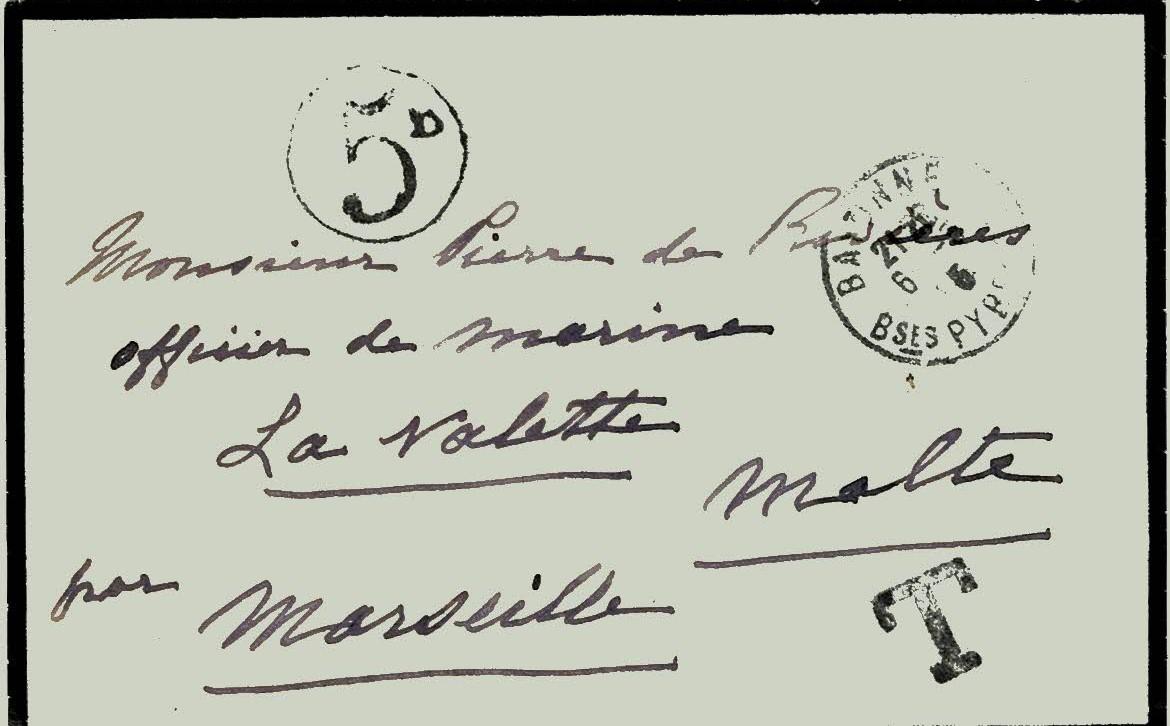 5D
Monsieur Pierre de
BAYONNE
6
BSES PYR
officier de marine
La Valette
Malte
par
Marseille
T